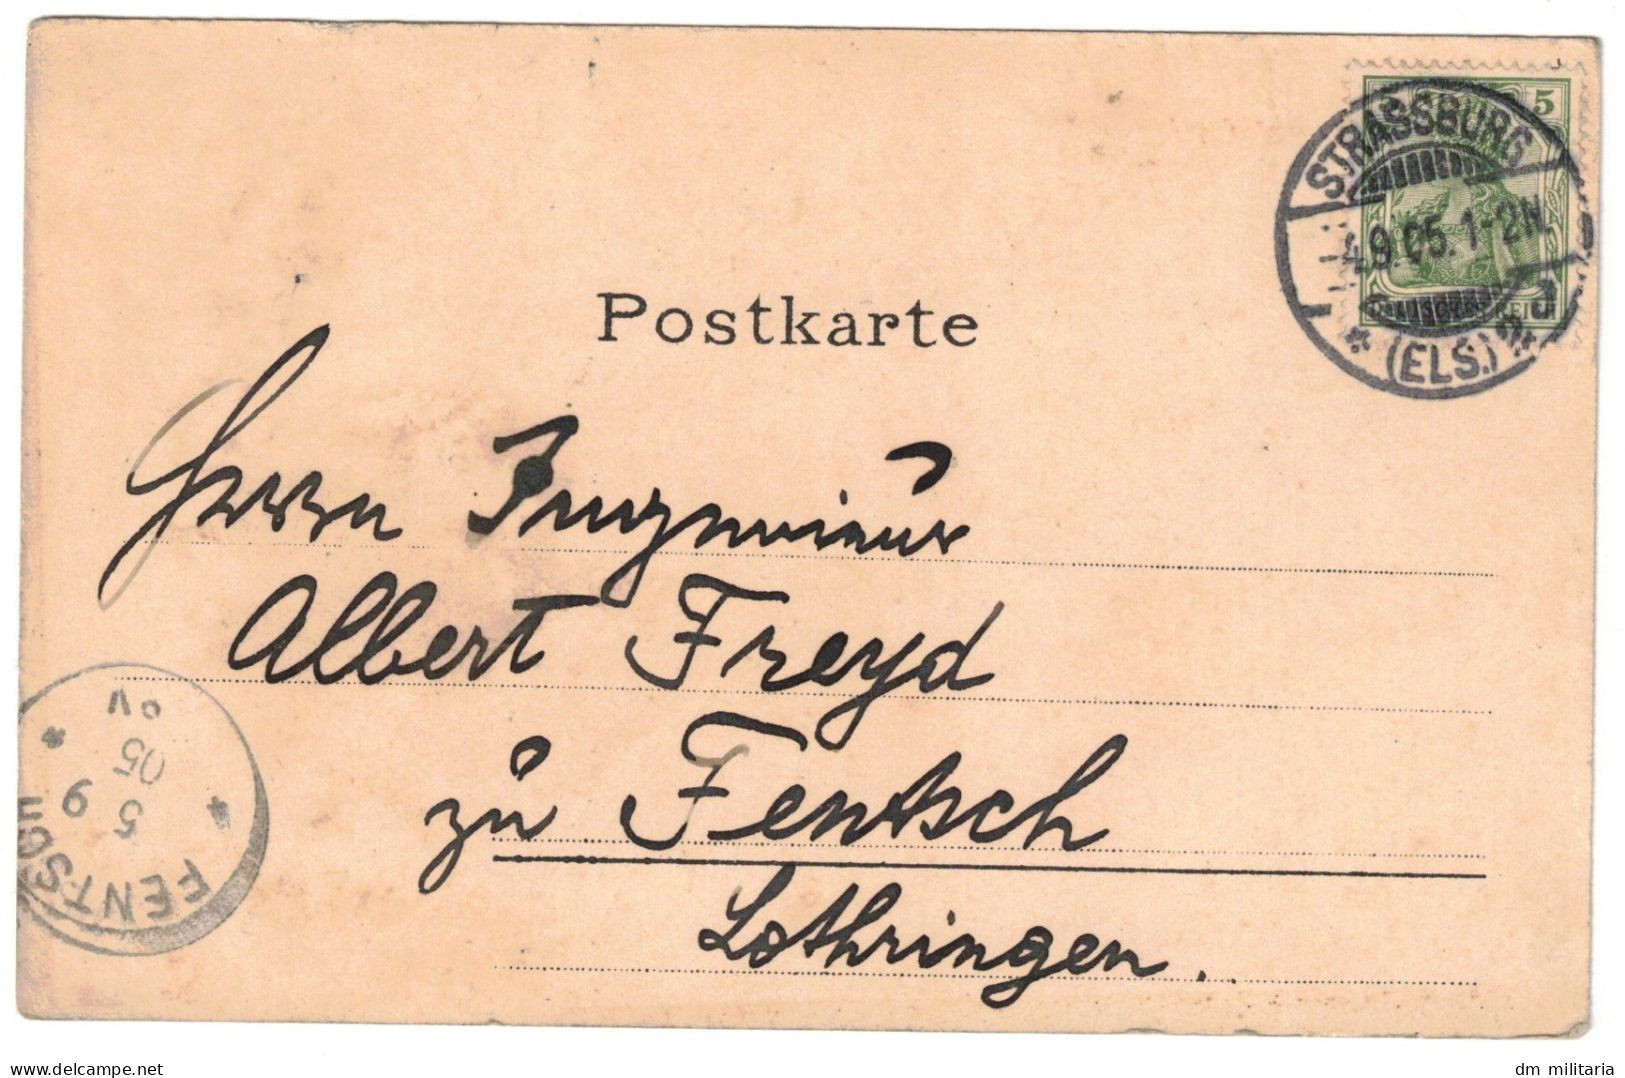 5
STRASSBURG
4.9.05. 1-2N.
(ELS.)
Postkarte
Herrn Ingenieur
Albert Freyd
zu Fentsch
Lothringen.
FENTSCH
5 9
05
dm militaria
www.delcampe.net